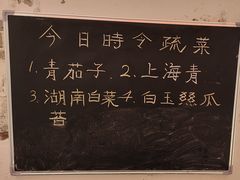 今日時令疏菜
1.青茄子.2.上海青
3.湖南白菜4.白玉絲瓜
苔